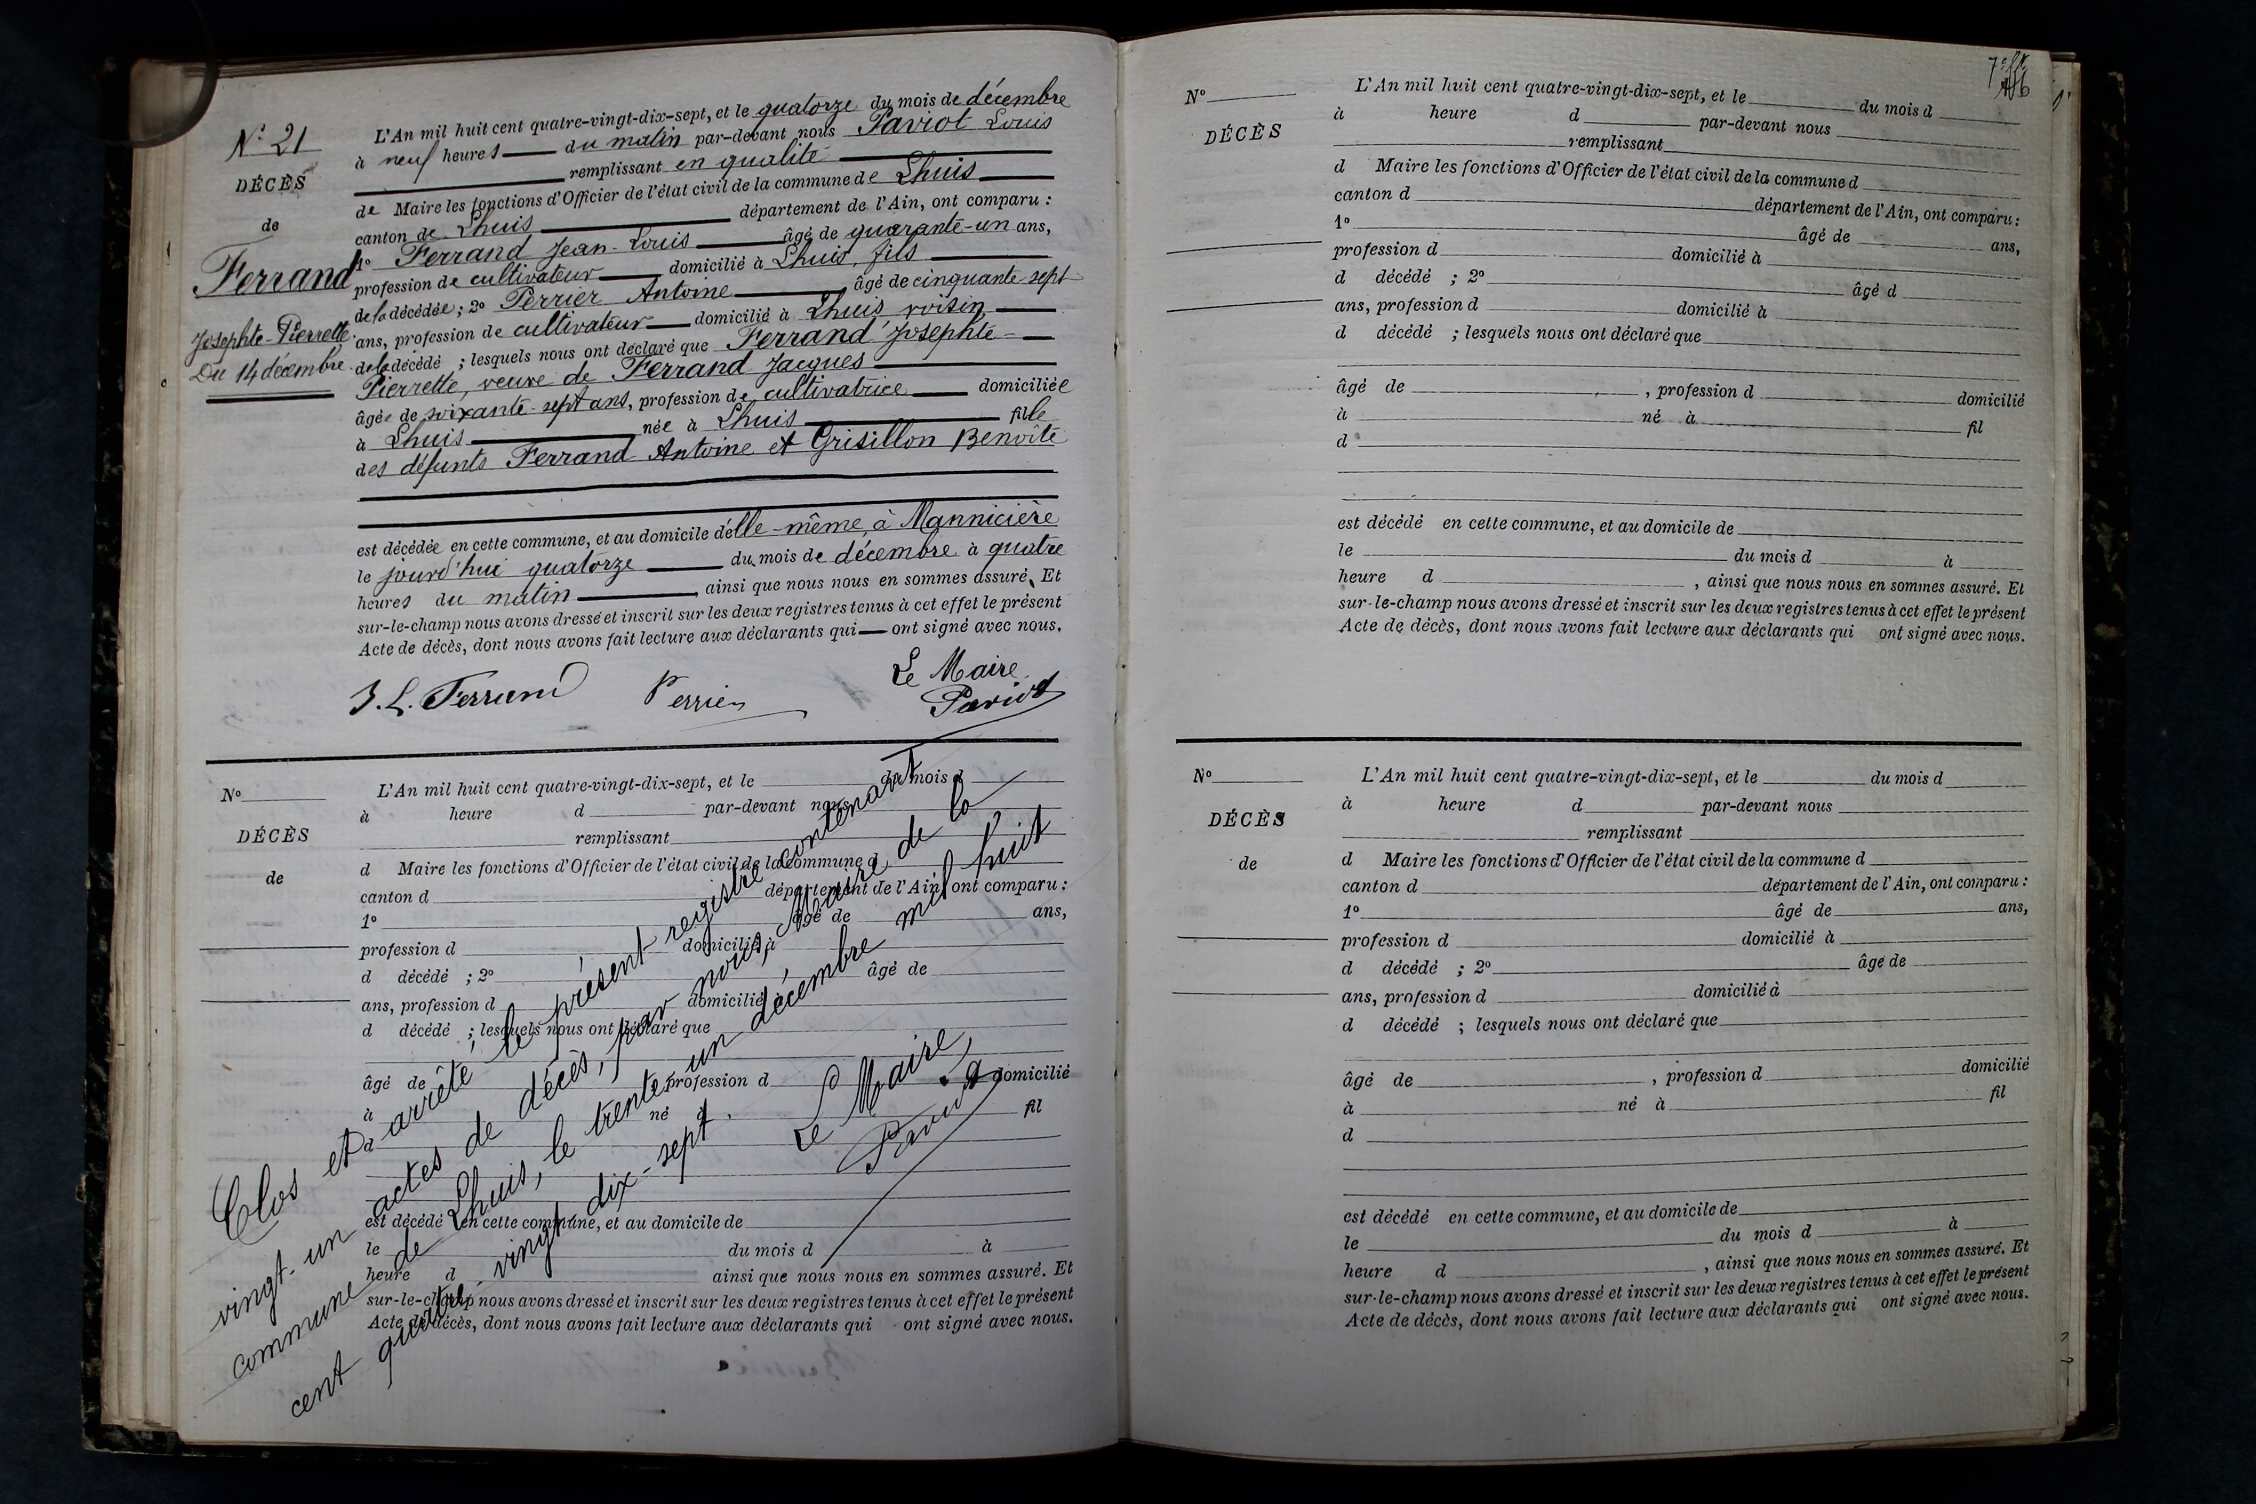 N° 21
DÉCÈS
de
Ferrand
Josephte-Pierrette
Du 14 décembre
L'An mil huit cent quatre-vingt-dix-sept, et le quatorze du mois de décembre
à neuf heures du matin par-devant nous Paviot Louis
remplissant en qualité
de Maire les fonctions d'Officier de l'état civil de la commune de Lhuis
canton de Lhuis département de l'Ain, ont comparu :
1° Ferrand Jean-Louis âgé de quarante-un ans,
profession de cultivateur domicilié à Lhuis, fils
de la décédée ; 2° Perrier Antoine âgé de cinquante sept
ans, profession de cultivateur domicilié à Lhuis voisin,
de la décédé ; lesquels nous ont déclaré que Ferrand Josephte-
Pierrette, veuve de Ferrand Jacques
âgée de soixante-sept ans, profession de cultivatrice domiciliée
à Lhuis née à Lhuis fille
des défunts Ferrand Antoine et Grisillon Benoîte
est décédée en cette commune, et au domicile d'elle-même, à Mannicière
le jourd'hui quatorze du mois de décembre à quatre
heures du matin, ainsi que nous nous en sommes assuré. Et
sur-le-champ nous avons dressé et inscrit sur les deux registres tenus à cet effet le présent
Acte de décès, dont nous avons fait lecture aux déclarants qui ont signé avec nous.
J. L. Ferrand Perrier Le Maire
Paviot
N°
DÉCÈS
de
L'An mil huit cent quatre-vingt-dix-sept, et le du mois d
à heure d par-devant nous
remplissant
d Maire les fonctions d'Officier de l'état civil de la commune d
canton d département de l'Ain, ont comparu :
1° âgé de ans,
profession d domicilié à
d décédé ; 2° âgé de
ans, profession d domicilié à
d décédé ; lesquels nous ont déclaré que
âgé de , profession d domicilié
à né à fil
d
est décédé en cette commune, et au domicile de
le du mois d à
heure d ainsi que nous nous en sommes assuré. Et
sur-le-champ nous avons dressé et inscrit sur les deux registres tenus à cet effet le présent
Acte de décès, dont nous avons fait lecture aux déclarants qui ont signé avec nous.
Clos et arrêté, le présent registre contenant
vingt-un actes de décès, par nous, Maire de la
commune de Lhuis, le trente-un décembre mil huit
cent quatre-vingt-dix-sept.
Le Maire,
Paviot
N°
DÉCÈS
L'An mil huit cent quatre-vingt-dix-sept, et le du mois d
à heure d par-devant nous
remplissant
d Maire les fonctions d'Officier de l'état civil de la commune d
canton d département de l'Ain, ont comparu :
1° âgé de ans,
profession d domicilié à
d décédé ; 2° âgé d
ans, profession d domicilié à
d décédé ; lesquels nous ont déclaré que
âgé de , profession d domicilié
à né à fil
d
est décédé en cette commune, et au domicile de
le du mois d à
heure d , ainsi que nous nous en sommes assuré. Et
sur-le-champ nous avons dressé et inscrit sur les deux registres tenus à cet effet le présent
Acte de décès, dont nous avons fait lecture aux déclarants qui ont signé avec nous.
N°
DÉCÈS
de
L'An mil huit cent quatre-vingt-dix-sept, et le du mois d
à heure d par-devant nous
remplissant
d Maire les fonctions d'Officier de l'état civil de la commune d
canton d département de l'Ain, ont comparu :
1° âgé de ans,
profession d domicilié à
d décédé ; 2° âgé de
ans, profession d domicilié à
d décédé ; lesquels nous ont déclaré que
âgé de , profession d domicilié
à né à fil
d
est décédé en cette commune, et au domicile de
le du mois d à
heure d , ainsi que nous nous en sommes assuré. Et
sur-le-champ nous avons dressé et inscrit sur les deux registres tenus à cet effet le présent
Acte de décès, dont nous avons fait lecture aux déclarants qui ont signé avec nous.